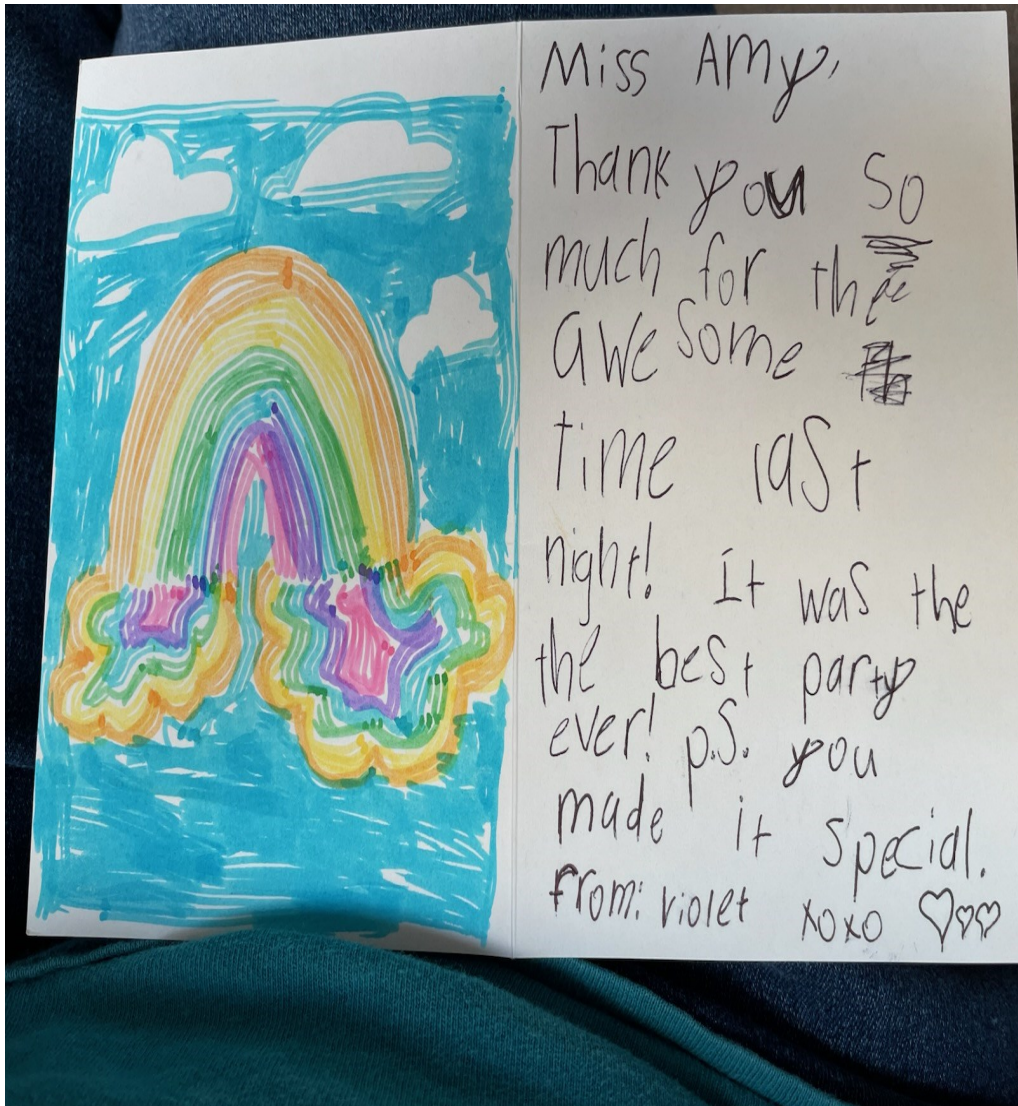 Miss Amy,
Thank you so
much for the
awesome
time last
night! It was the
the best party
ever! p.s. you
made it special.
from: violet xoxo ♡♡♡